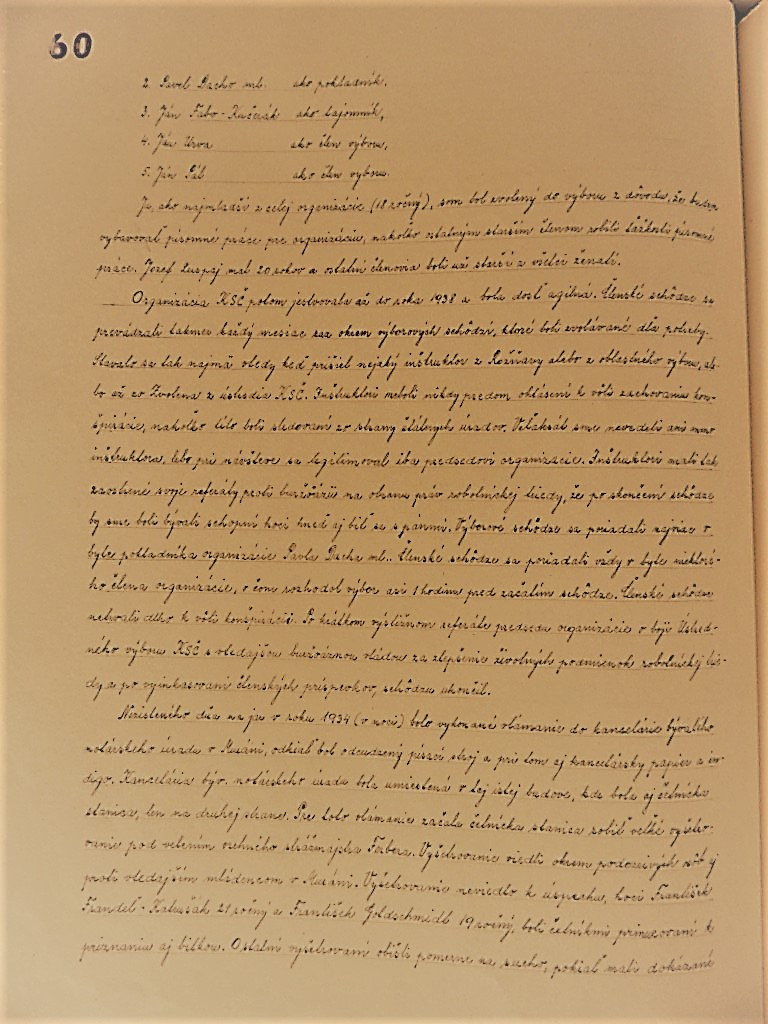 60
2. Pavel Dacho ml. ako pokladník,
3. Ján Fabo-Kučerák ako tajomník,
4. Ján Urva ako člen výboru,
5. Ján Gál ako člen výboru.
Ja, ako najmladší z celej organizácie (18 ročný), som bol zvolený do výboru z dôvodu, že budem
vybavovať písomné práce pre organizáciu, nakoľko ostatným starším členom robili ťažkosti písomné
práce. Jozef Luspaj mal 20 rokov a ostatní členovia boli už starší a všetci ženatí.
Organizácia KSČ potom jestvovala až do roku 1938 a bola dosť agilná. Členské schôdze sa
prevádzali takmer každý mesiac raz okrem výborových schôdzí, ktoré boli zvolávané dľa potreby.
Stávalo sa tak najmä vtedy keď prišiel nejaký inštruktor z Rožňavy alebo z oblastného výboru, ale-
bo až zo Zvolena z ústredia KSČ. Inštruktori neboli nikdy predom ohlásení k vôli zachovaniu kon-
špirácie, nakoľko títo boli sledovaní zo strany štátnych úradov. Veľakrát sme nevedeli ani meno
inštruktora, lebo pri návšteve sa legitimoval iba predsedovi organizácie. Inštruktori mali tak
zaostrené svoje referáty proti buržoázii na obranu práv robotníckej triedy, že po skončení schôdze
by sme boli bývali schopní hoci hneď aj biť sa s pánmi. Výborové schôdze sa poriadali najviac v
byte pokladníka organizácie Pavla Dacha ml.. Členské schôdze sa poriadali vždy v byte niektoré-
ho člena organizácie, o čom rozhodol výbor asi 1 hodinu pred začatím schôdze. Členské schôdze
netrvali dlho k vôli konšpirácii. Po krátkom výstižnom referáte predsedu organizácie o boji Ústred-
ného výboru KSČ s vtedajšou buržoáznou vládou za zlepšenie životných podmienok robotníckej trie-
dy a po vyinkasovaní členských príspevkov, schôdzu ukončil.
Nezisteného dňa na jar v roku 1934 (v noci) bolo vykonané vlámanie do kancelárie bývalého
notárskeho úradu v Muráni, odkiaľ bol odcudzený písací stroj a pri tom aj kancelársky papier a in-
digo. Kancelária býv. notárskeho úradu bola umiestená v tej istej budove, kde bola aj četnícka
stanica, len na druhej strane. Pre toto vlámanie začala četnícka stanica robiť veľké vyšetro-
vanie pod velením vrchného strážmajstra Ferbera. Vyšetrovanie viedli okrem podozrivých osôb aj
proti vtedajším mládencom v Muráni. Vyšetrovanie neviedlo k úspechu, hoci František
Frandel Kalušák 21 ročný a František Goldschmidt 19 ročný, boli četníkmi prinucovaní k
priznaniu aj bitkou. Ostatní vyšetrovaní obišli pomerne na sucho, pokiaľ mali dokázané